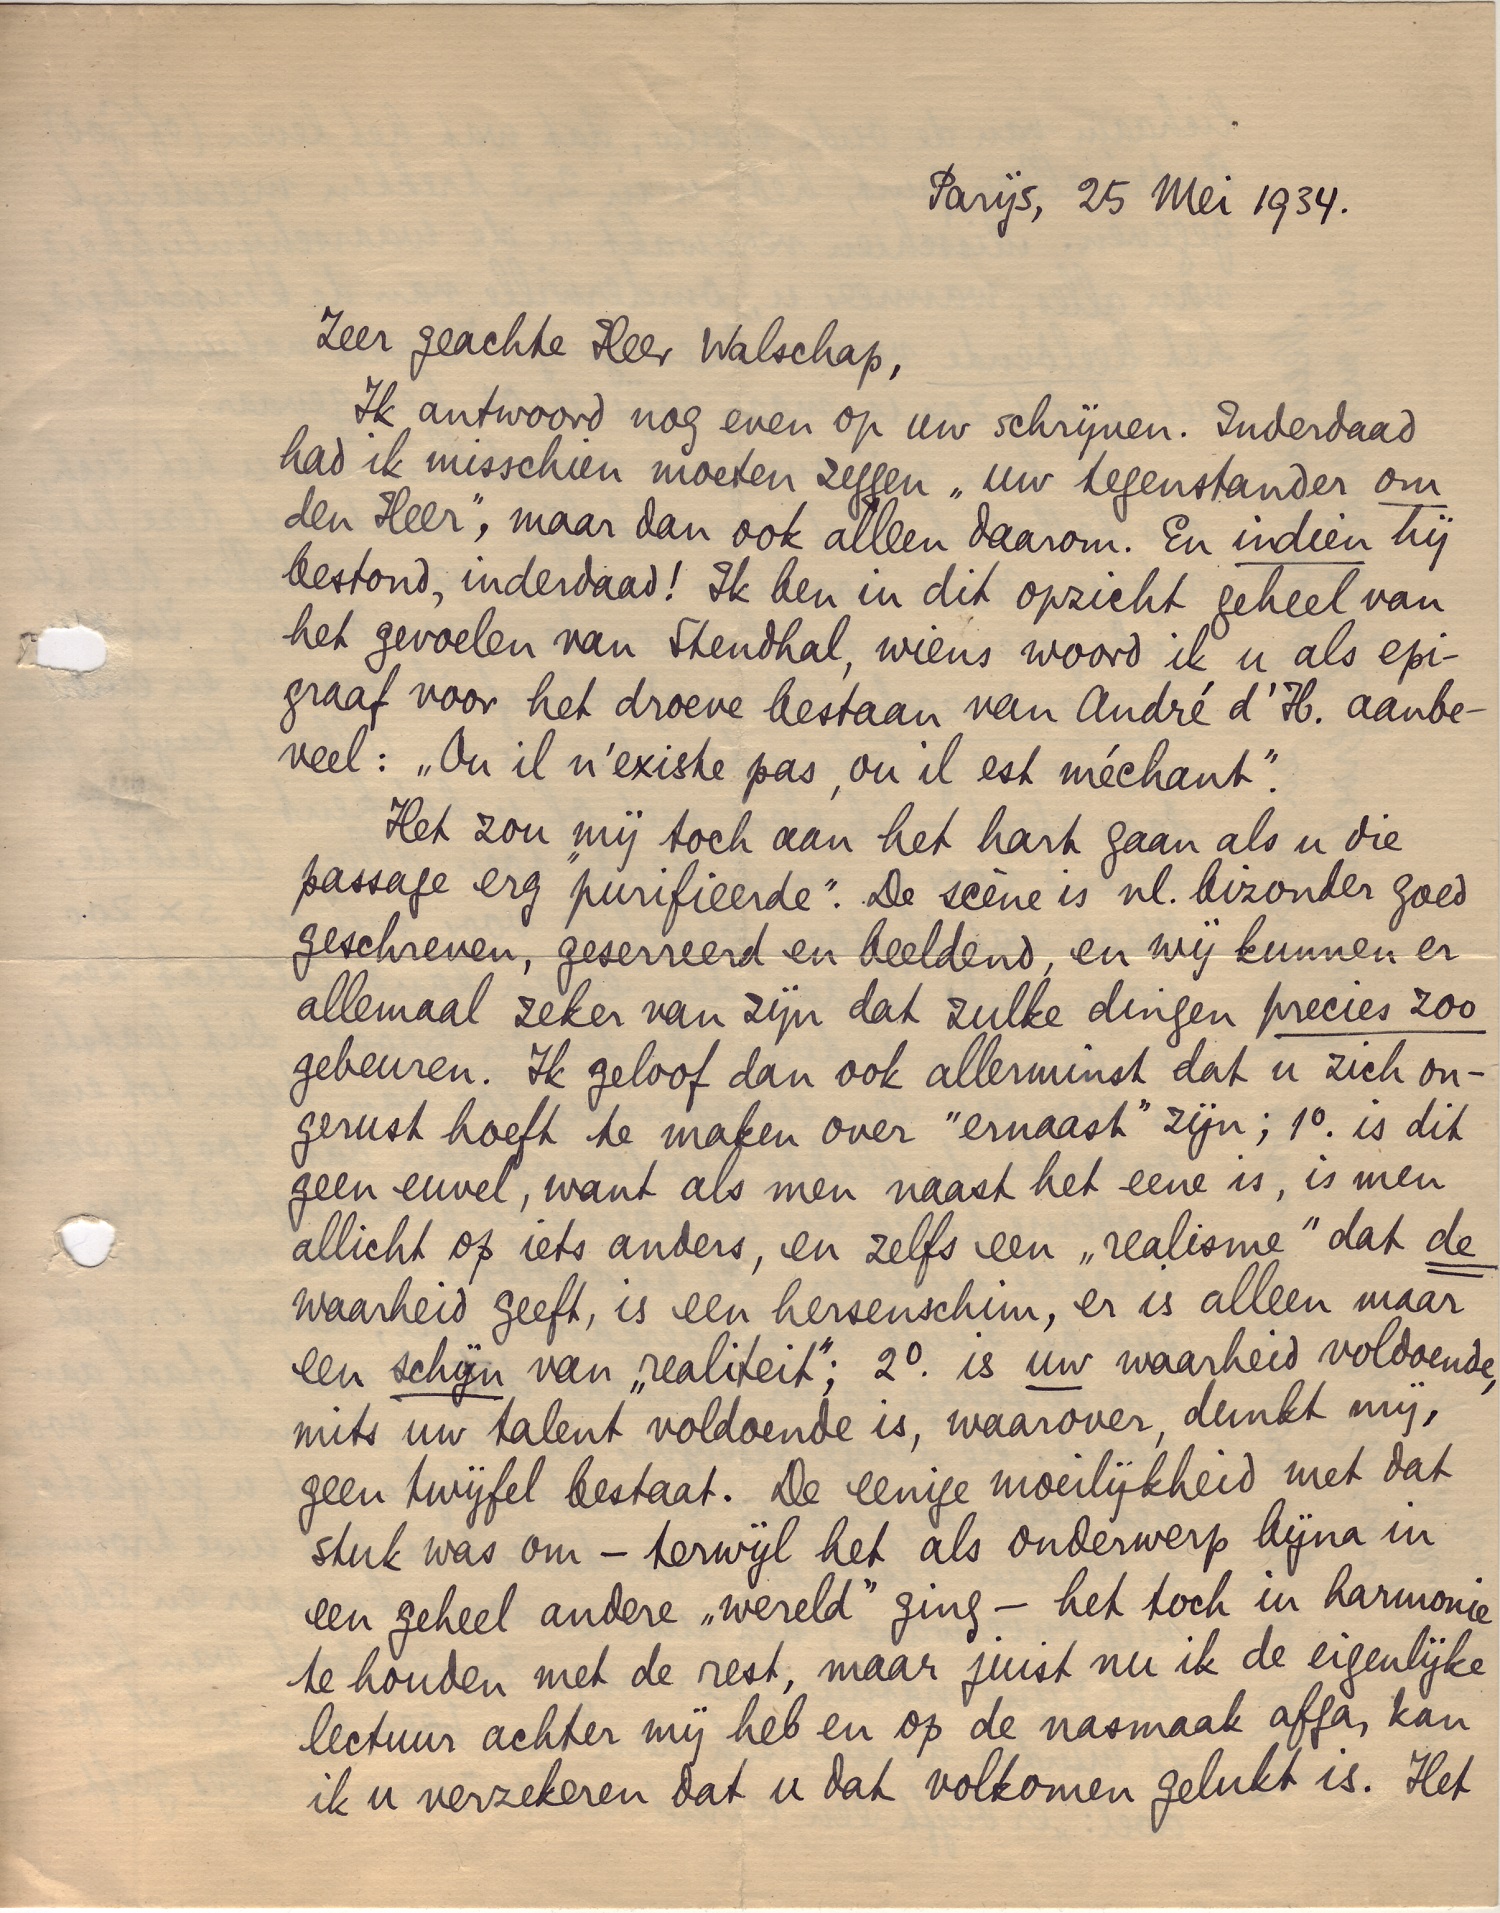 Parijs, 25 Mei 1934.
Zeer geachte Heer Walschap,
Ik antwoord nog even op uw schrijven. Inderdaad
had ik misschien moeten zeggen „uw tegenstander om
den Heer", maar dan ook alleen daarom. En indien hij
bestond, inderdaad! Ik ben in dit opzicht geheel van
het gevoelen van Stendhal, wiens woord ik u als epi-
graaf voor het droeve bestaan van André d'H. aanbe-
veel: „Ou il n'existe pas, ou il est méchant".
Het zou mij toch aan het hart gaan als u die
passage erg "purifieerde". De scène is nl. bizonder goed
geschreven, geserreerd en beeldend, en wij kunnen er
allemaal zeker van zijn dat zulke dingen precies zoo
gebeuren. Ik geloof dan ook allerminst dat u zich on-
gerust hoeft te maken over "ernaast" zijn; 1°. is dit
geen euvel, want als men naast het eene is, is men
allicht op iets anders, en zelfs een „realisme" dat de
waarheid geeft, is een hersenschim, er is alleen maar
een schijn van „realiteit"; 2°. is uw waarheid voldoende,
mits uw talent voldoende is, waarover, dunkt mij,
geen twijfel bestaat. De eenige moeilijkheid met dat
stuk was om – terwijl het als onderwerp bijna in
een geheel andere „wereld" ging – het toch in harmonie
te houden met de rest, maar juist nu ik de eigenlijke
lectuur achter mij heb en op de nasmaak afga, kan
ik u verzekeren dat u dat volkomen gelukt is. Het